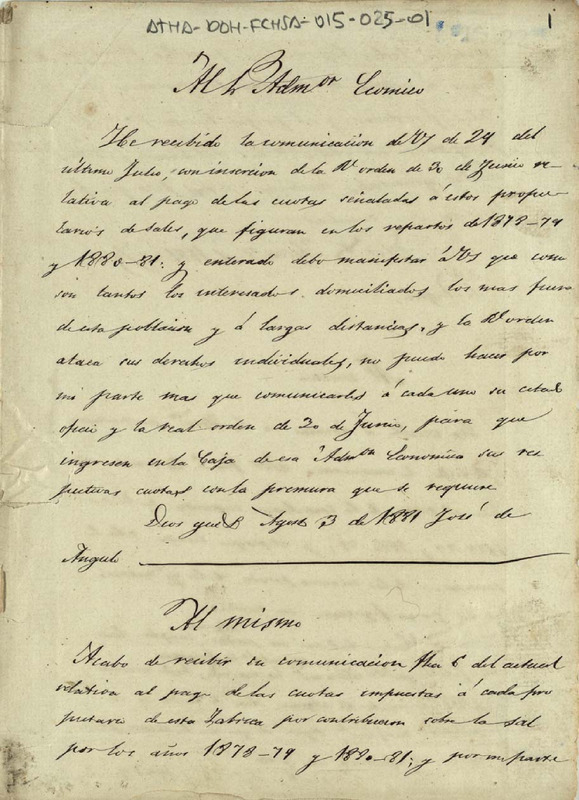 ATHA-DDH-FCHSA-015-025-01
1
Al Sr Admor Ecomico
He recibido la comunicacion de VS de 24 del
último Julio, con insercion de la Rl orden de 30 de Junio re-
lativa al pago de las cuotas señaladas á estos propie
tarios de Sales, que figuran en los repartos de 1878-79
y 1880-81; y enterado debo manifestar á VS que como
son tantos los interesados domiciliados los mas fuera
de esta poblacion y á largas distancias, y la Rl orden
ataca sus derechos individuales, no puedo hacer por
mi parte mas que comunicarles á cada uno su citado
oficio y la real orden de 30 de Junio, para que
ingresen en la Caja de esa Admon Económica sus res
pectivas cuotas con la premura que se requiere
Dios gue á Agosto 3 de 1881 José de
Angulo
Al mismo
Acabo de recibir su comunicacion fha 6 del actual
relativa al pago de las cuotas impuestas á cada pro
pietario de esta Fabrica por contribucion sobre la sal
por los años 1878-79 y 1880-81; y por mi parte